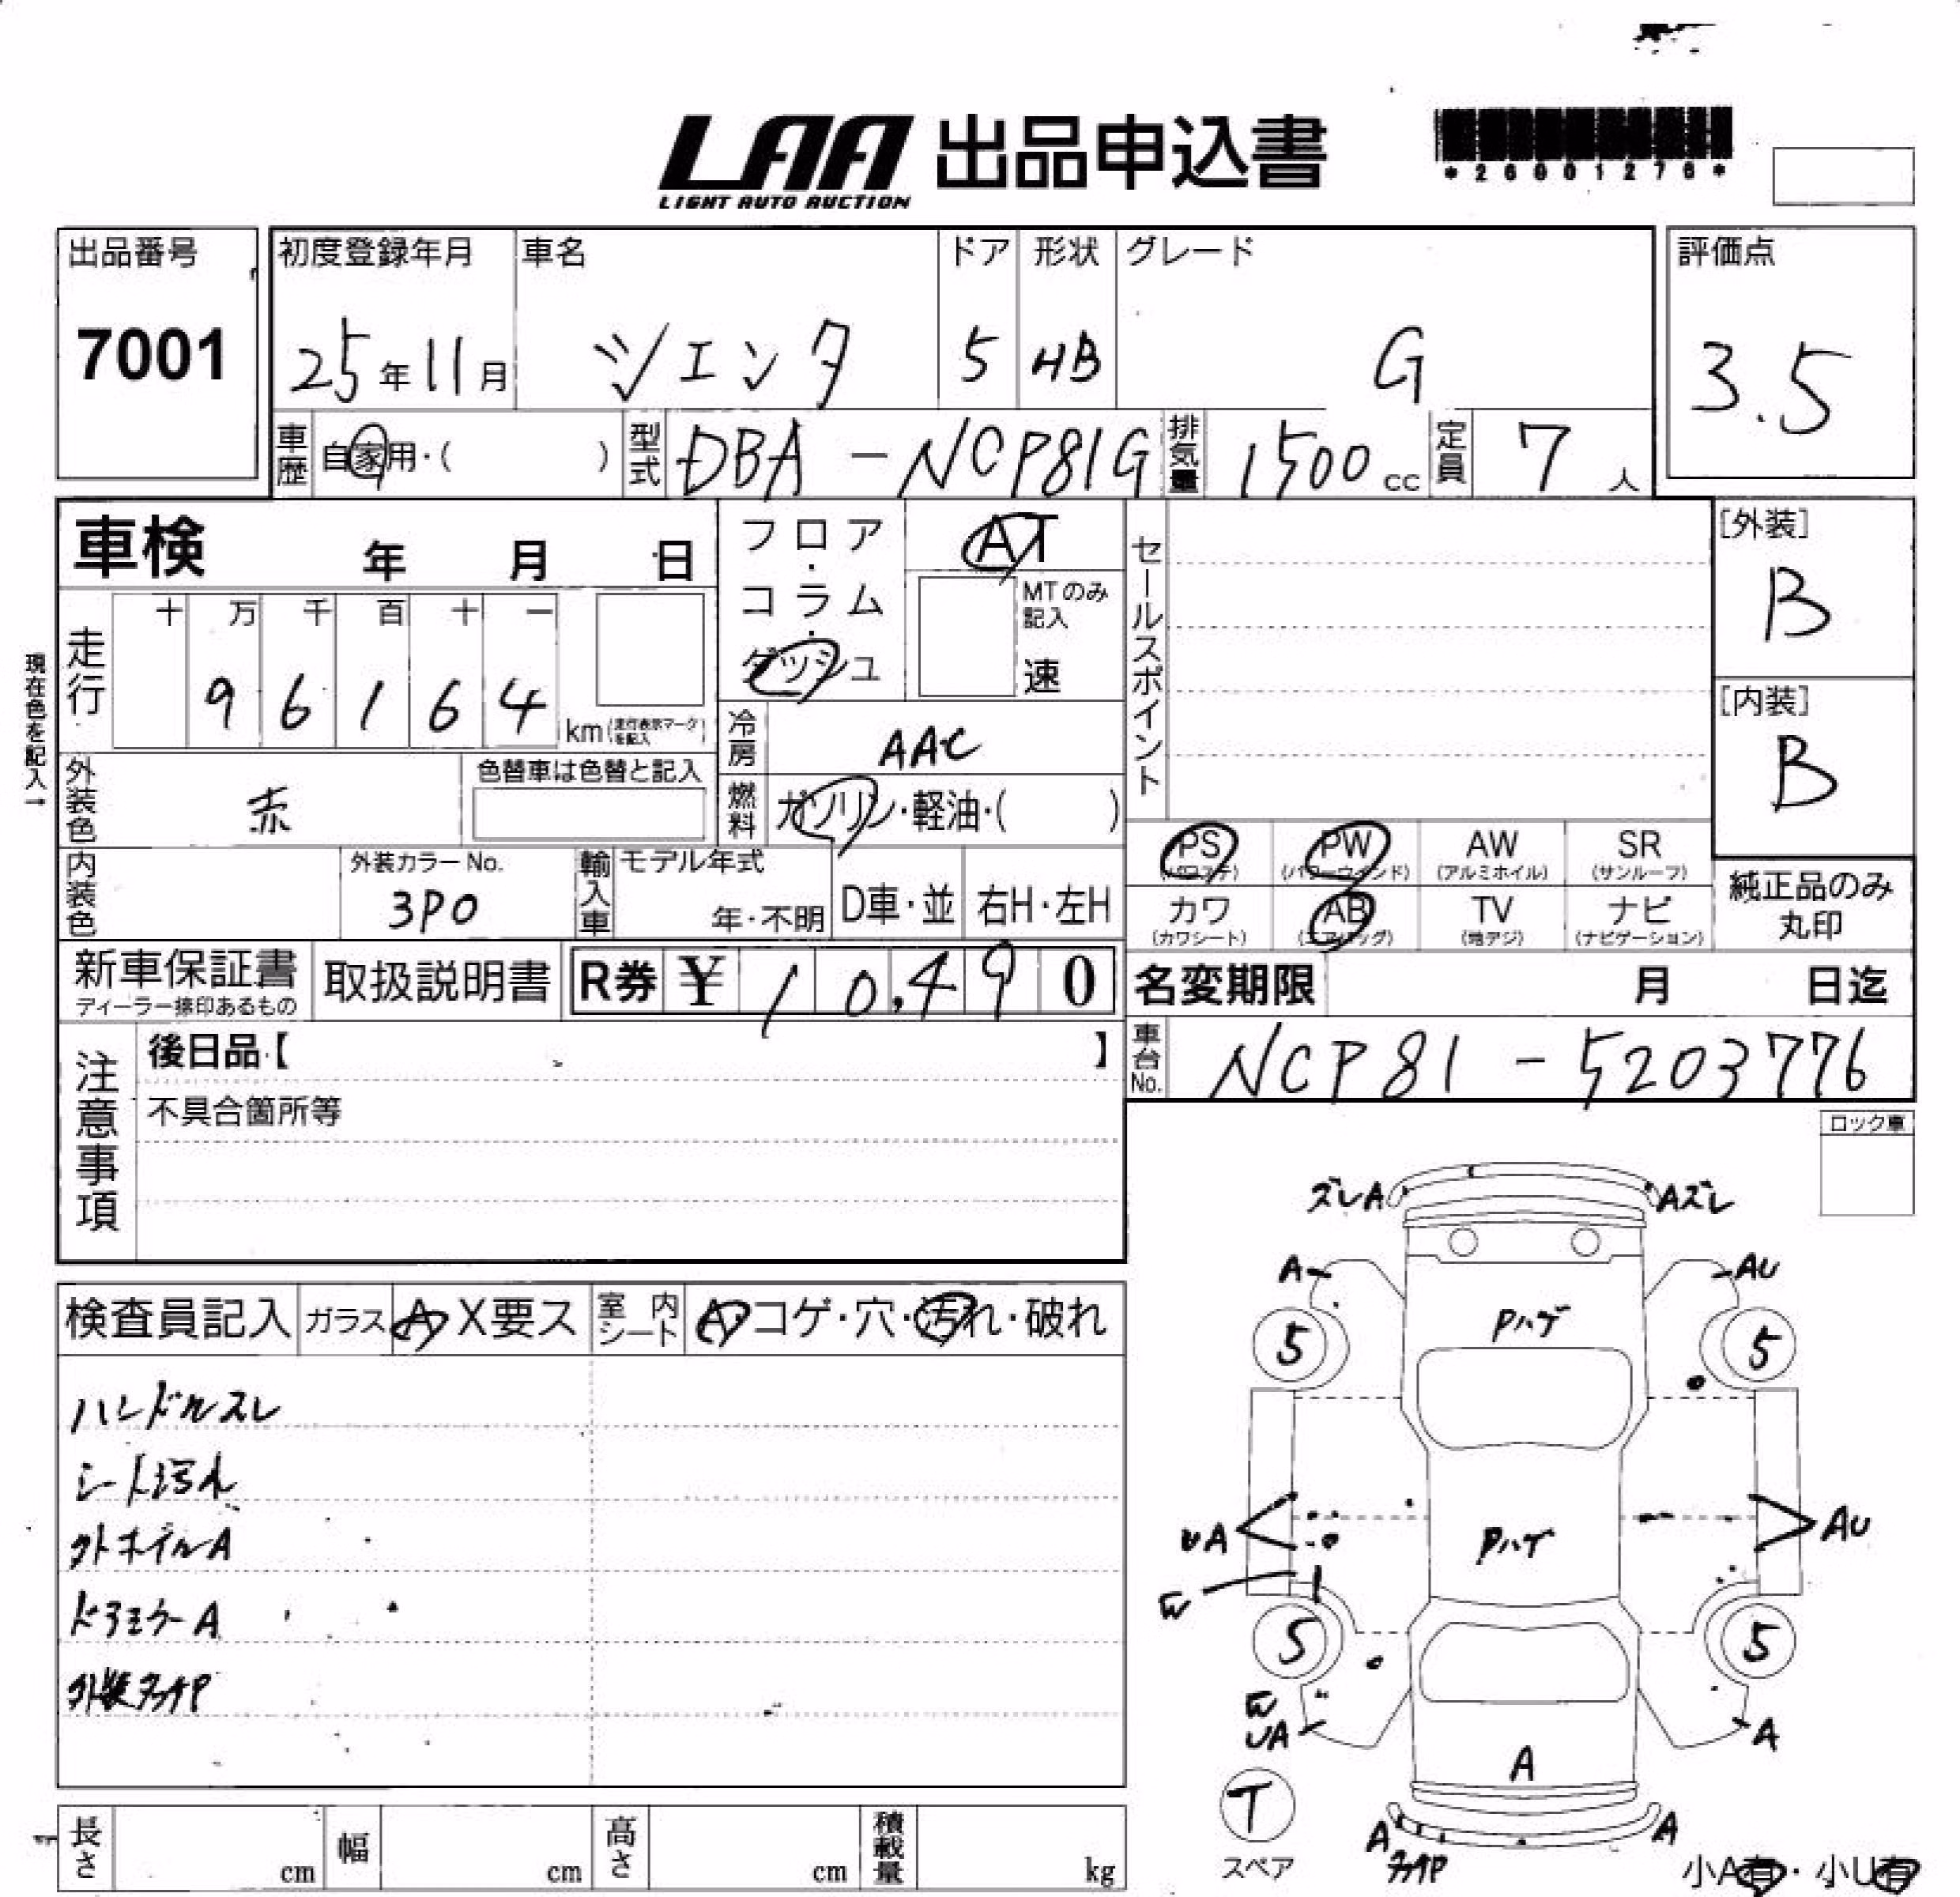 LAA 出品申込書
LIGHT AUTO AUCTION
*26001276*
出品番号
7001
初度登録年月
25年11月
車名
シエンタ
ドア
5
形状
HB
グレード
G
評価点
3.5
車歴
自家用・( )
型式
DBA-NCP81G
排気量
1500cc
定員
7人
車検 年 月 日
フロア・コラム・ダッシュ
AT
MTのみ記入
速
セールスポイント
[外装]
B
[内装]
B
現在色を記入→
走行
十 万 千 百 十 一
9 6 1 6 4
km(走行表示マークを記入)
冷房
AAC
外装色
赤
色替車は色替と記入
燃料
ガソリン・軽油・( )
PS (パワステ)
PW (パワーウィンド)
AW (アルミホイル)
SR (サンルーフ)
カワ (カワシート)
AB (エアバッグ)
TV (地デジ)
ナビ (ナビゲーション)
純正品のみ丸印
内装色
外装カラーNo.
3P0
輸入車
モデル年式
年・不明
D車・並
右H・左H
新車保証書
ディーラー捺印あるもの
取扱説明書
R券 ¥10,490
名変期限 月 日迄
車台No.
NCP81-5203776
注意事項
後日品【 】
不具合箇所等
ロック車
検査員記入
ガラス A X要ス
室内シート A・コゲ・穴・汚れ・破れ
ハンドルスレ
シート汚れ
外ホイルA
ドアミラーA
外装タッチP
ズレA
Aズレ
A
AU
Pハゲ
5
5
UA
Pハゲ
AU
W
5
5
W
UA
A
A
T
スペア
A
タッチP
A
小A有・小U有
長さ cm
幅 cm
高さ cm
積載量 kg